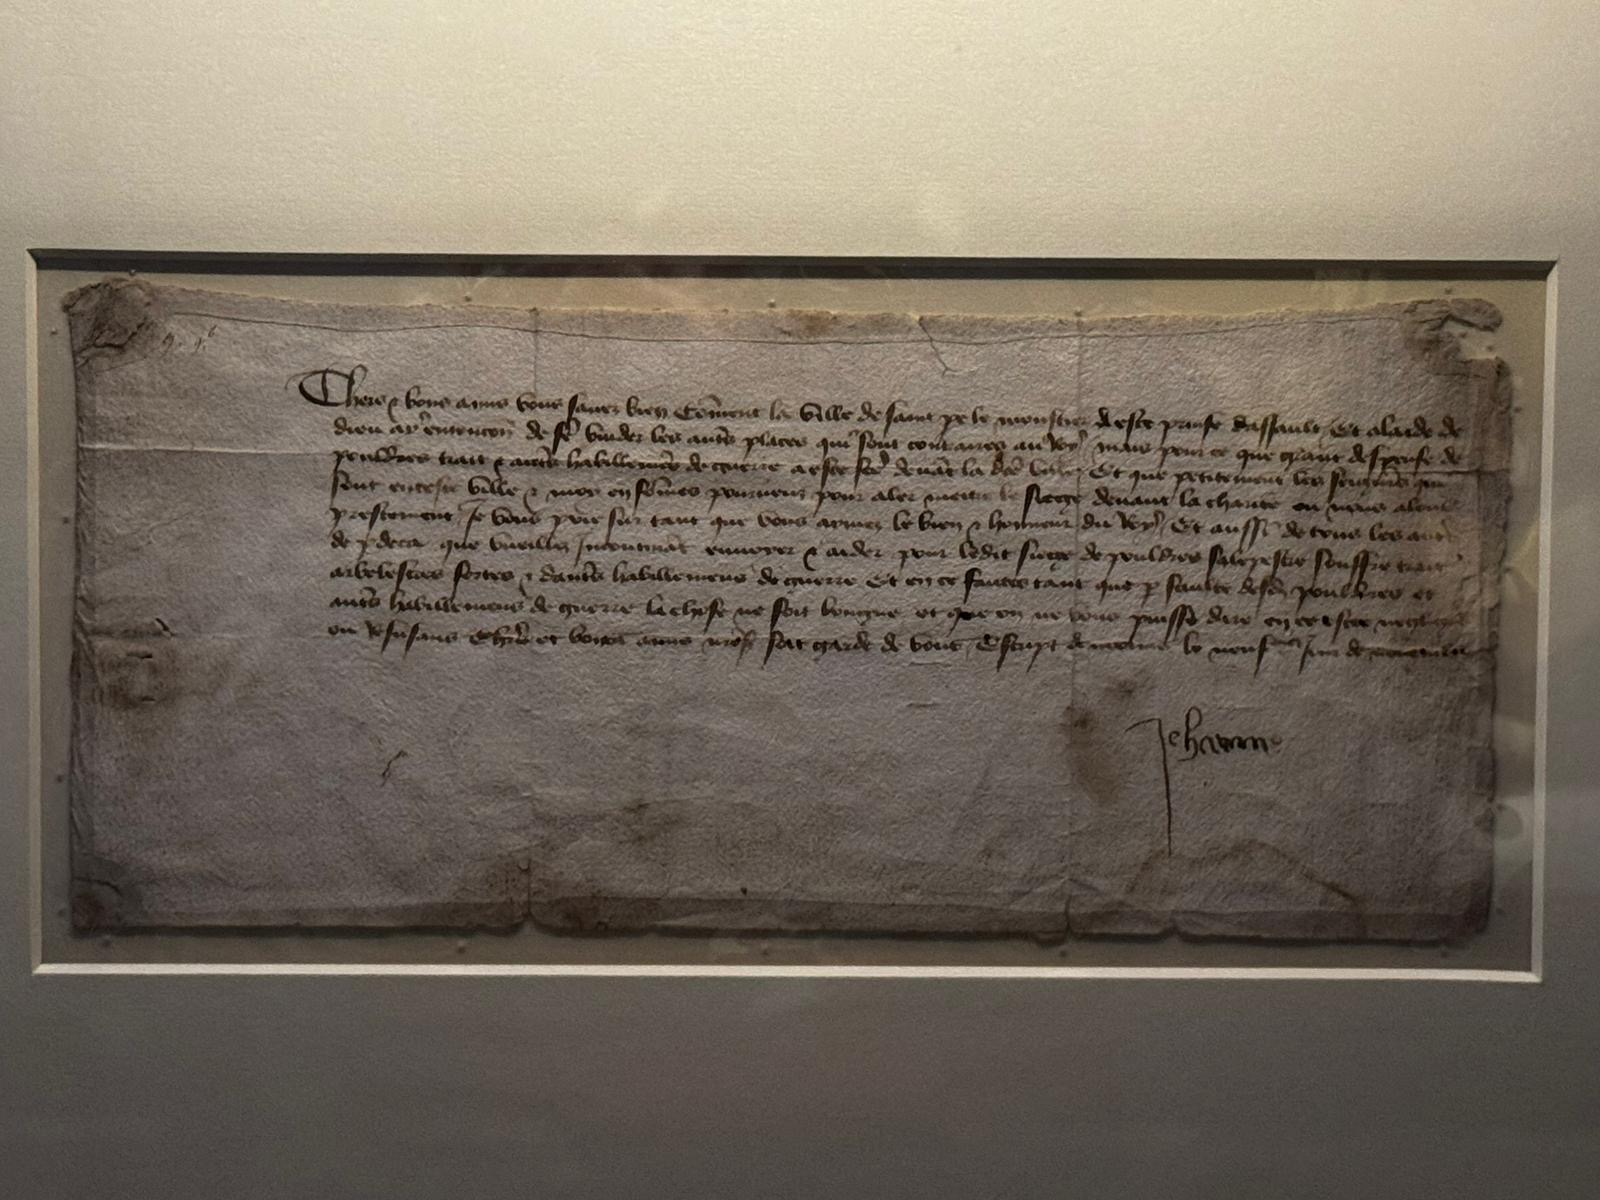 Chers et bons amis vous savez bien coment la ville de saint pere le moustier a este prinse dassault Et a laide de
dieu ay entencon de fe vuider les auts places qui sont contraires au Roy mais pour ce que grant despense de
pouldres trait et auts habillemes de guerre a este fce devat la de ville Et que petitement les seigneurs qui
sont en ceste ville et moy en somes pourveuz pour aler mettre le siege devant la charite ou nous alons
prestement Je vous prie sur tant que vous aymez le bien et honneur du Roy Et aussi de tous les auts
de p deca que vueillez Incontinat envoyer et aider pour ledit siege de pouldres salepestre souffre trait
arbelestres fortes et dauts habillemens de guerre Et en ce faictes tant que p faulte desd pouldres et
auts habillemens de guerre la chose ne soit longue et que on ne vous puisse dire en ce estre negligens
ou Refusans Chrs et bons amis nre sr soit garde de vous Escript a molins le neufme Jour de novembre
Jehanne